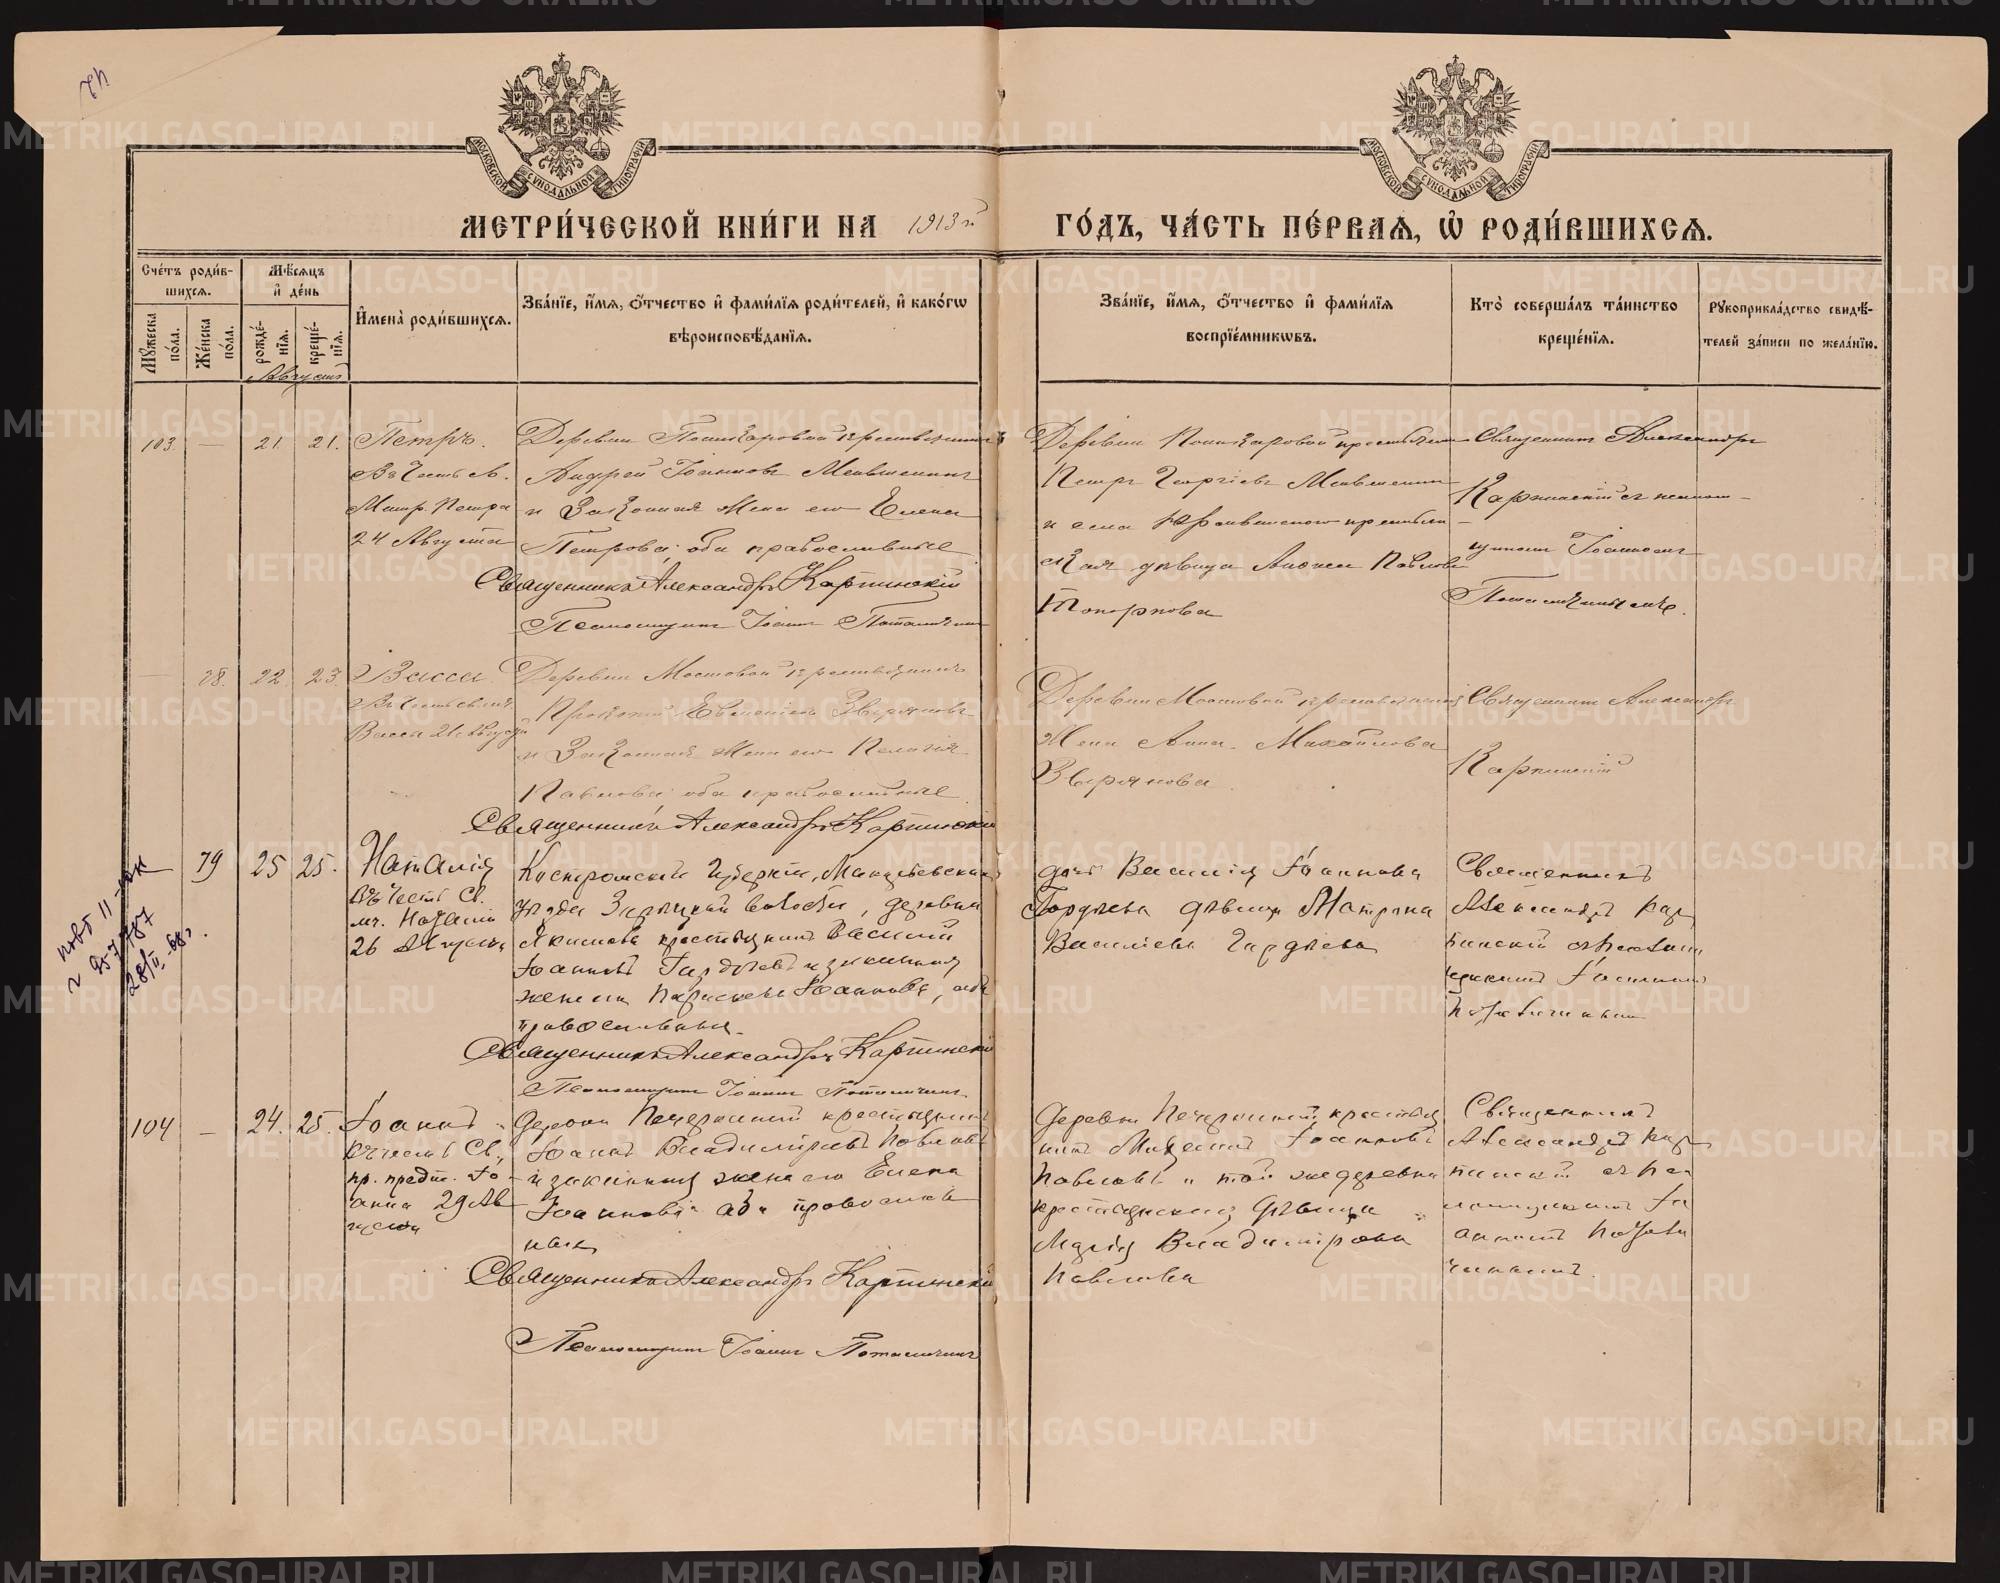 МЕТРИ́ЧЕСКОЙ КНИ́ГИ НА 1913 г.
ГО́ДЪ, ЧА́СТЬ ПЕ́РВАѦ, Ѡ҆ РОДИ́ВШИХСѦ.
Сче́тъ роди́в-
шихсѧ.
Мꙋ́жеска по́ла.
Же́нска по́ла.
Мѣ́сѧцъ
и҆ де́нь
рожде́-
нїѧ.
креще́-
нїѧ.
Августъ
И҆мена̀ роди́вшихсѧ.
Зва́нїе, и҆́мѧ, ѻ҆́тчество и҆ фами́лїѧ роди́телей, и҆ како́гѡ
вѣроисповѣ́данїѧ.
Зва́нїе, и҆́мѧ, ѻ҆́тчество и҆ фами́лїѧ
воспрїе́мникѡвъ.
Кто̀ соверша́лъ та́инство
креще́нїѧ.
Рꙋкоприкла́дство свидѣ́-
телей за́писи по жела́нїю.
103. — 21. 21.
Петръ.
Въ честь св.
Мощ. Петра
24 Августа
Деревни крестьянинъ
Андрей Іоанновъ Меньшенинъ
и Законная Жена его Елена
Петрова, оба православные
Священникъ Александръ Карпинскій
Псаломщикъ Іоаннъ Поташкинъ
Деревни
Петръ Георгіевъ Меньшенинъ
и села
ская девица Павлова
Топоркова
Священникъ Александръ
Карпинскій съ псалом-
щикомъ Іоанномъ
— 78. 22. 23.
Васса.
Въ честь св. муч.
Вассы 21 Августа
Деревни Мостовой крестьянинъ
Прокопій Евменіевъ Зыряновъ
и Законная Жена его Пелагія
Павлова оба православные.
Священникъ Александръ Карпинскій
Деревни Мостовой крестьянина
Жена Анна Михайлова
Зырянова
Священникъ Александръ
Карпинскій
79 25 25.
Наталія
въ честь Св.
мч. Наталіи
26 Августа
Костромской Губерніи, Макарьевскаго
уѣзда волости, деревни
Якимова крестьянинъ Василій
Іоанновъ Гордѣевъ и законная
жена его Параскева Іоаннова, оба
православныя
Священникъ Александръ Карпинскій
Псаломщикъ Іоаннъ
дочь Василія Іоаннова
Гордѣева дѣвица Матрона
Васильева Гордѣева
Священникъ
Александръ Кар
пинскій съ псалом
щикомъ Іоанномъ
повт II-ЮК
№ 957787
28/II-68г.
104 — 24. 25.
Іоаннъ
въ честь Св.
пр. предт. Іо
анна 29 Ав
густа
Деревни Печеркиной крестьянинъ
Іоаннъ Владиміровъ Павловъ
и законная жена его Елена
Іоаннова оба православ
ныя
Священникъ Александръ Карпинскій
Псаломщикъ Іоаннъ
Деревни Печеркиной крестья
нинъ Іоанновъ
Павловъ и той же деревни
крестьянская дѣвица
Марія Владимірова
Павлова
Священникъ
Александръ Кар
пинскій съ пса
ломщикомъ Іо
анномъ
METRIKI.GASO-URAL.RU